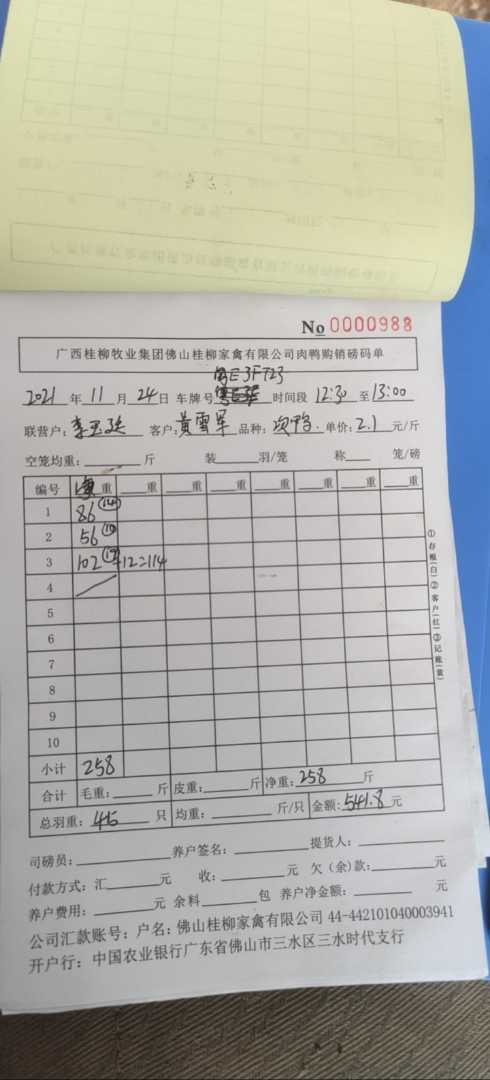 No 0000988
广西桂柳牧业集团佛山桂柳家禽有限公司肉鸭购销磅码单
粤E3F723
2021 年 11 月 24 日 车牌号 时间段 12:30 至 13:00
联营户: 李 客户: 黄雪军 品种: 次鸭 单价: 2.1 元/斤
空笼均重: 斤 装 羽/笼 称 笼/磅
编号 净重 重 重 重 重 重 重
1 86 (14)
2 56 (10)
3 102 (17) +12=114
4
5
6
7
8
9
10
小计 258
合计 毛重: 斤 皮重: 斤 净重: 258 斤
总羽重: 只 均重: 斤/只 金额: 541.8 元
司磅员: 养户签名: 提货人:
付款方式: 汇 元 收: 元 欠(余)款: 元
养户费用: 元 余料 包 养户净金额: 元
公司汇款账号: 户名: 佛山桂柳家禽有限公司 44-442101040003941
开户行: 中国农业银行广东省佛山市三水区三水时代支行
①存根(白)②客户(红)③记账(黄)